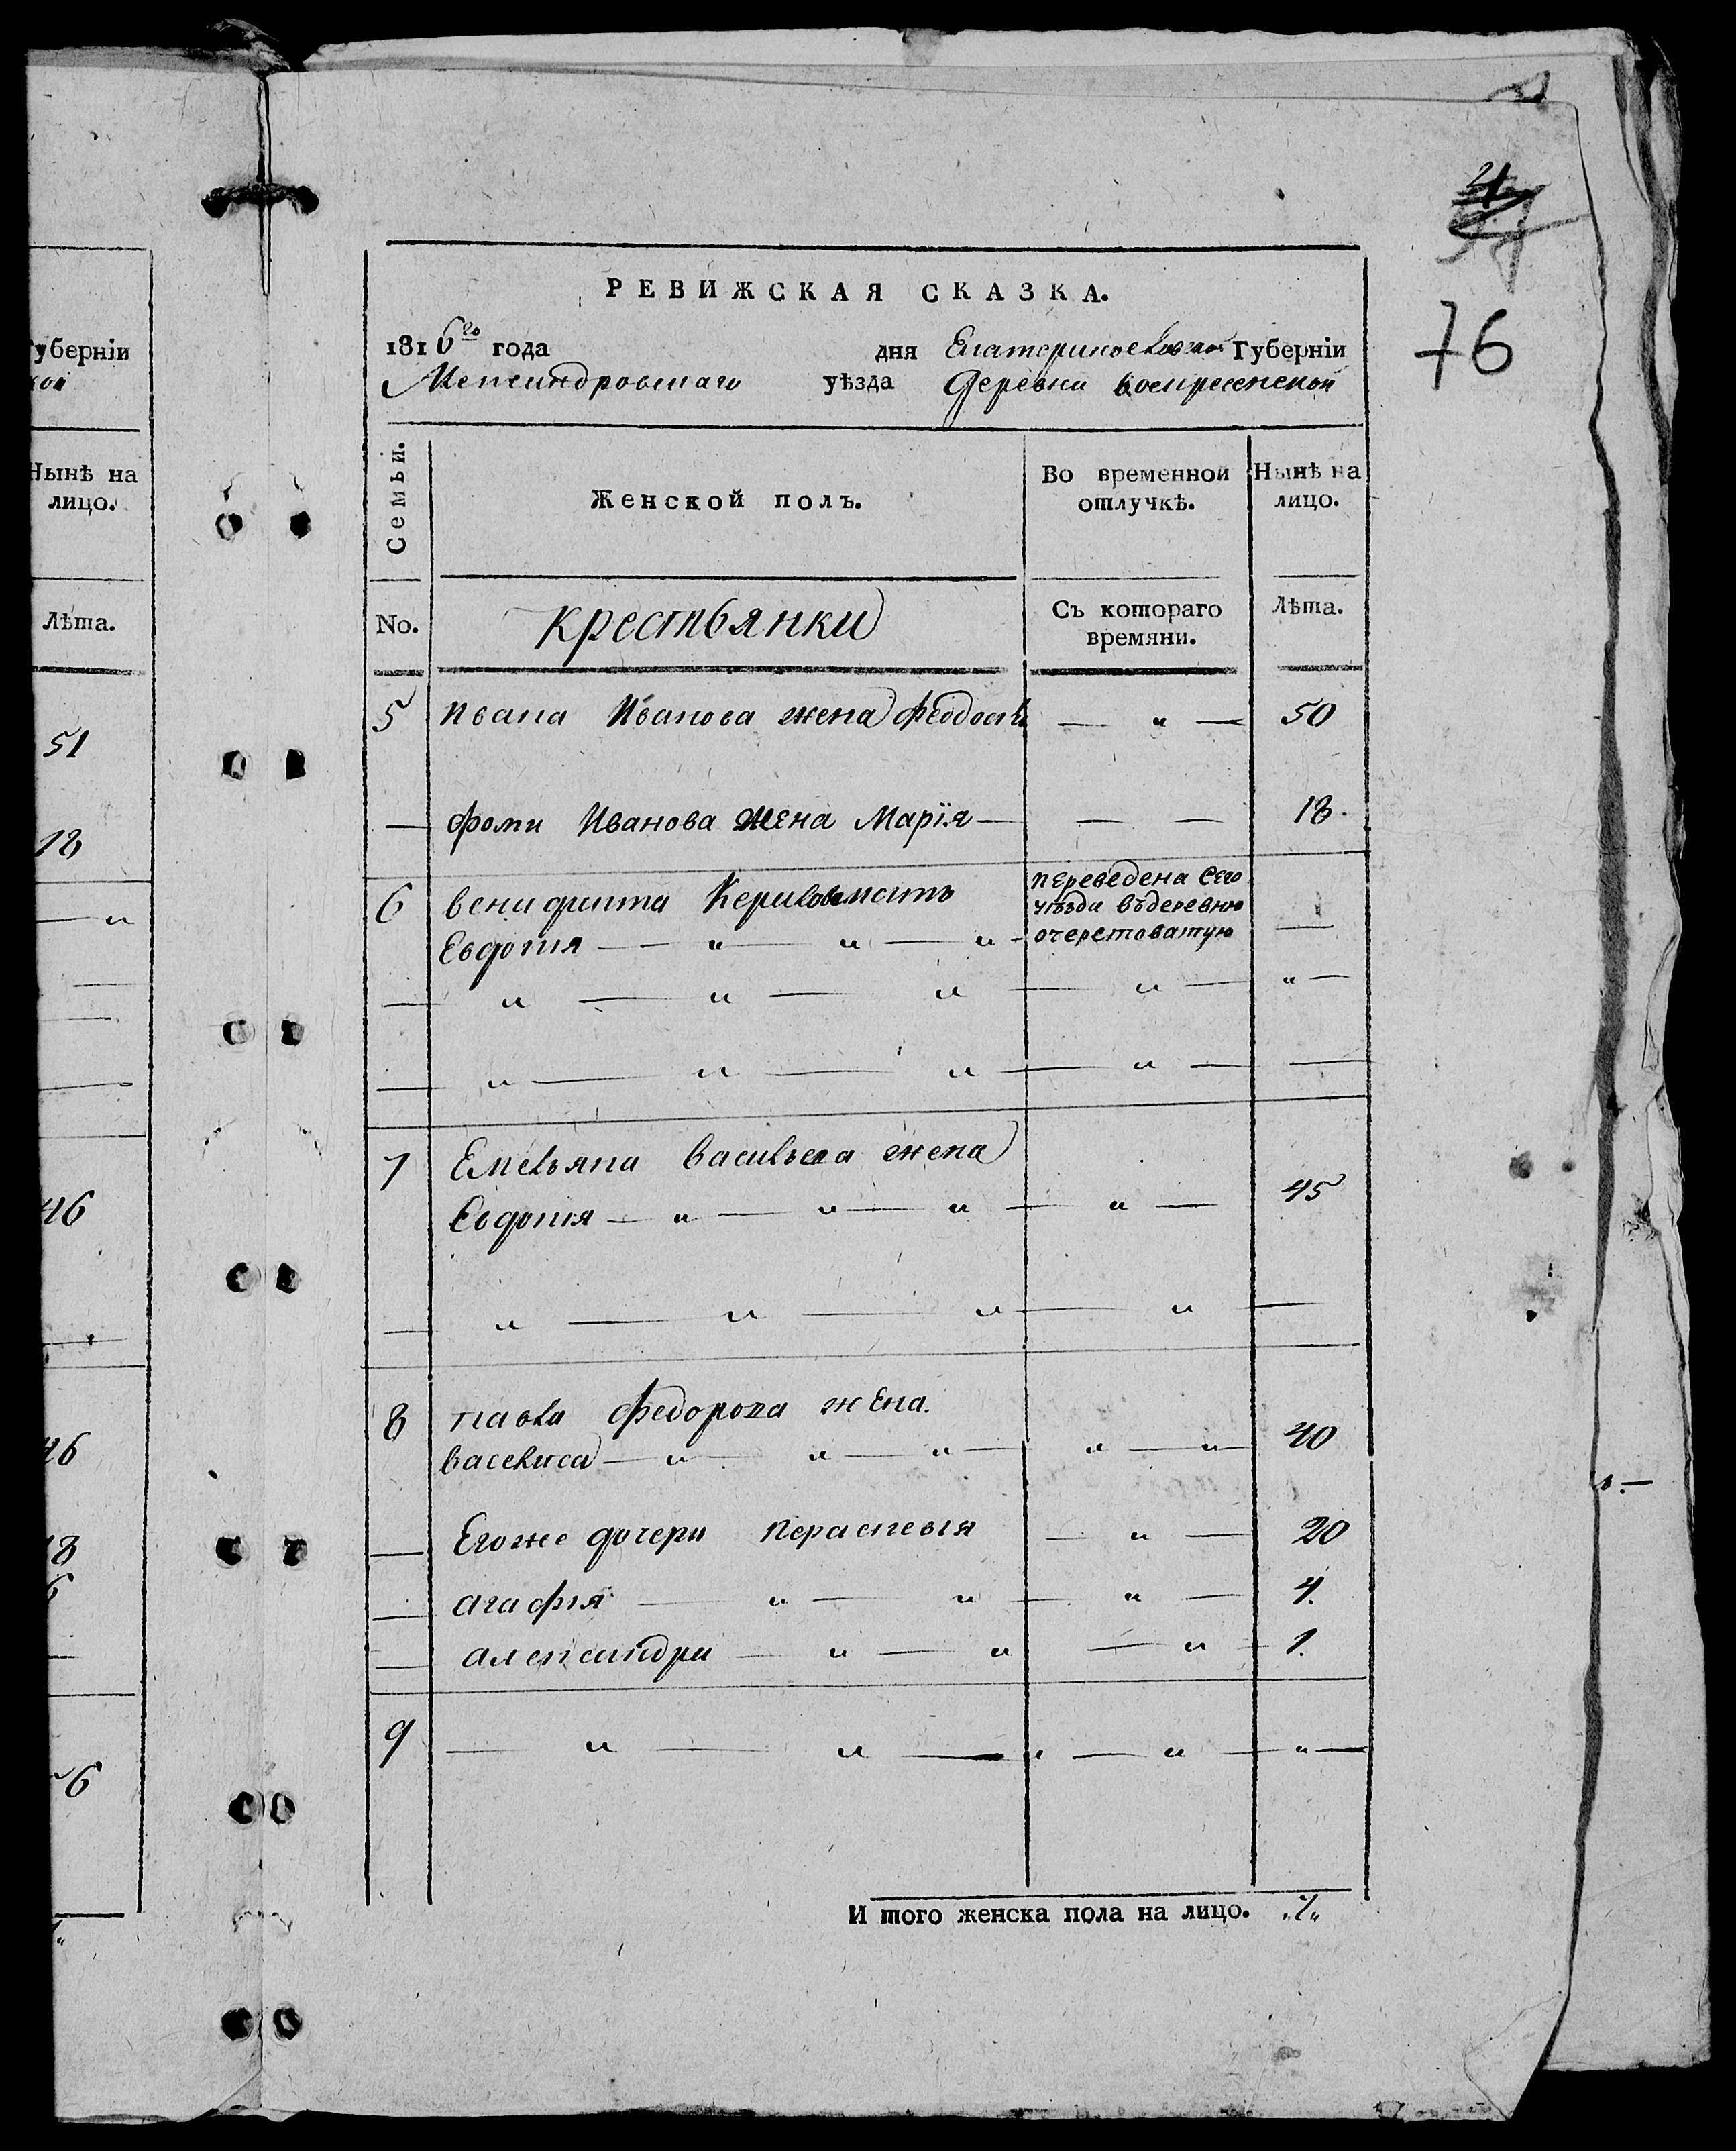 уберніи
кой
Нынѣ на
лицо.
Лѣта.
51
18
46
46
18
6
6
21
76
РЕВИЖСКАЯ СКАЗКА.
1816го года дня Екатеринославской Губерніи
Александровскаго уѣзда Деревни Воскресенской
Семьи. Женской полъ. Во временной отлучкѣ. Нынѣ на лицо.
No. Крестьянки Съ котораго времяни. Лѣта.
5 Ивана Иванова жена Феодосья — " — 50
— Фомы Иванова жена Марія — — — 18.
6 мать переведена сего
Евдокия — " — " — " — уѣзда въ деревню —
очеретоватую
— " — " — " — " — " —
— " — " — " — " — —
7 Емельяна Васильева жена
Евдокия — " — " — " — " — 45
— " — " — " — " —
8 Павла Федорова жена.
Василиса — " — " — " — " — " 40
— Егоже дочери Параскевия — " — 20
— агафия — " — " — " — 4.
— александра — " — " — " — 1.
9 — " — " — " — " — " —
И того женска пола на лицо. „7„